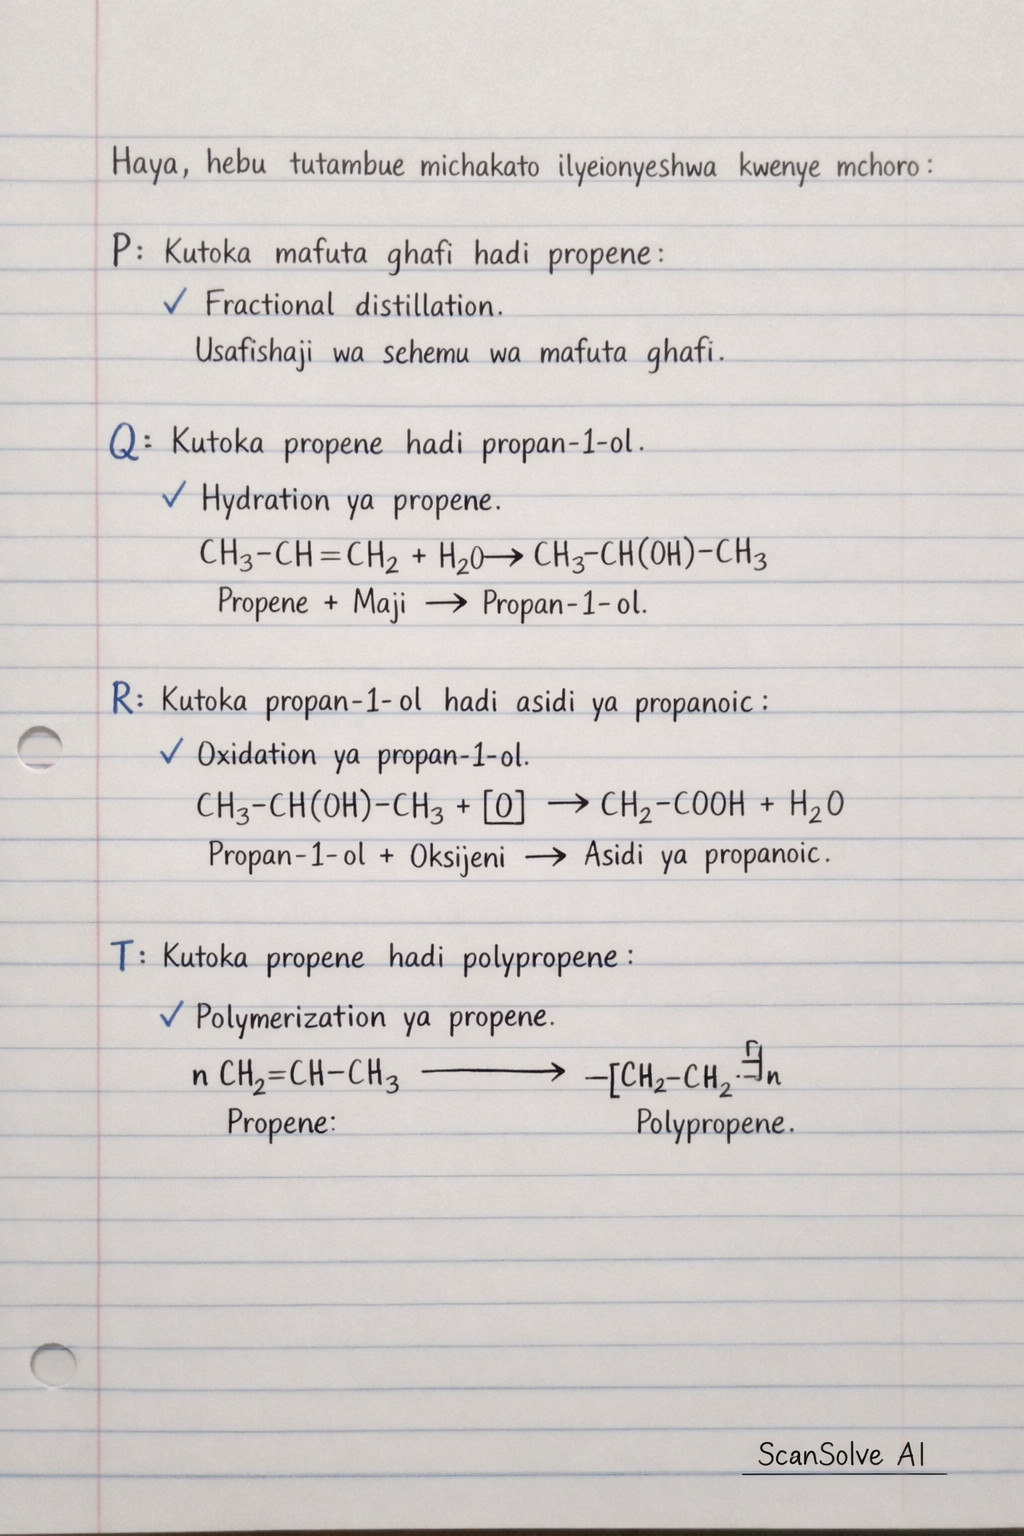 Haya, hebu tutambue michakato ilyeionyeshwa kwenye mchoro:
P: Kutoka mafuta ghafi hadi propene:
✓ Fractional distillation.
Usafishaji wa sehemu wa mafuta ghafi.
Q: Kutoka propene hadi propan-1-ol.
✓ Hydration ya propene.
CH₃-CH=CH₂ + H₂O → CH₃-CH(OH)-CH₃
Propene + Maji → Propan-1-ol.
R: Kutoka propan-1-ol hadi asidi ya propanoic:
✓ Oxidation ya propan-1-ol.
CH₃-CH(OH)-CH₃ + [O] → CH₂-COOH + H₂O
Propan-1-ol + Oksijeni → Asidi ya propanoic.
T: Kutoka propene hadi polypropene:
✓ Polymerization ya propene.
n CH₂=CH-CH₃ → -[CH₂-CH₂·]n
Propene: Polypropene.
ScanSolve AI